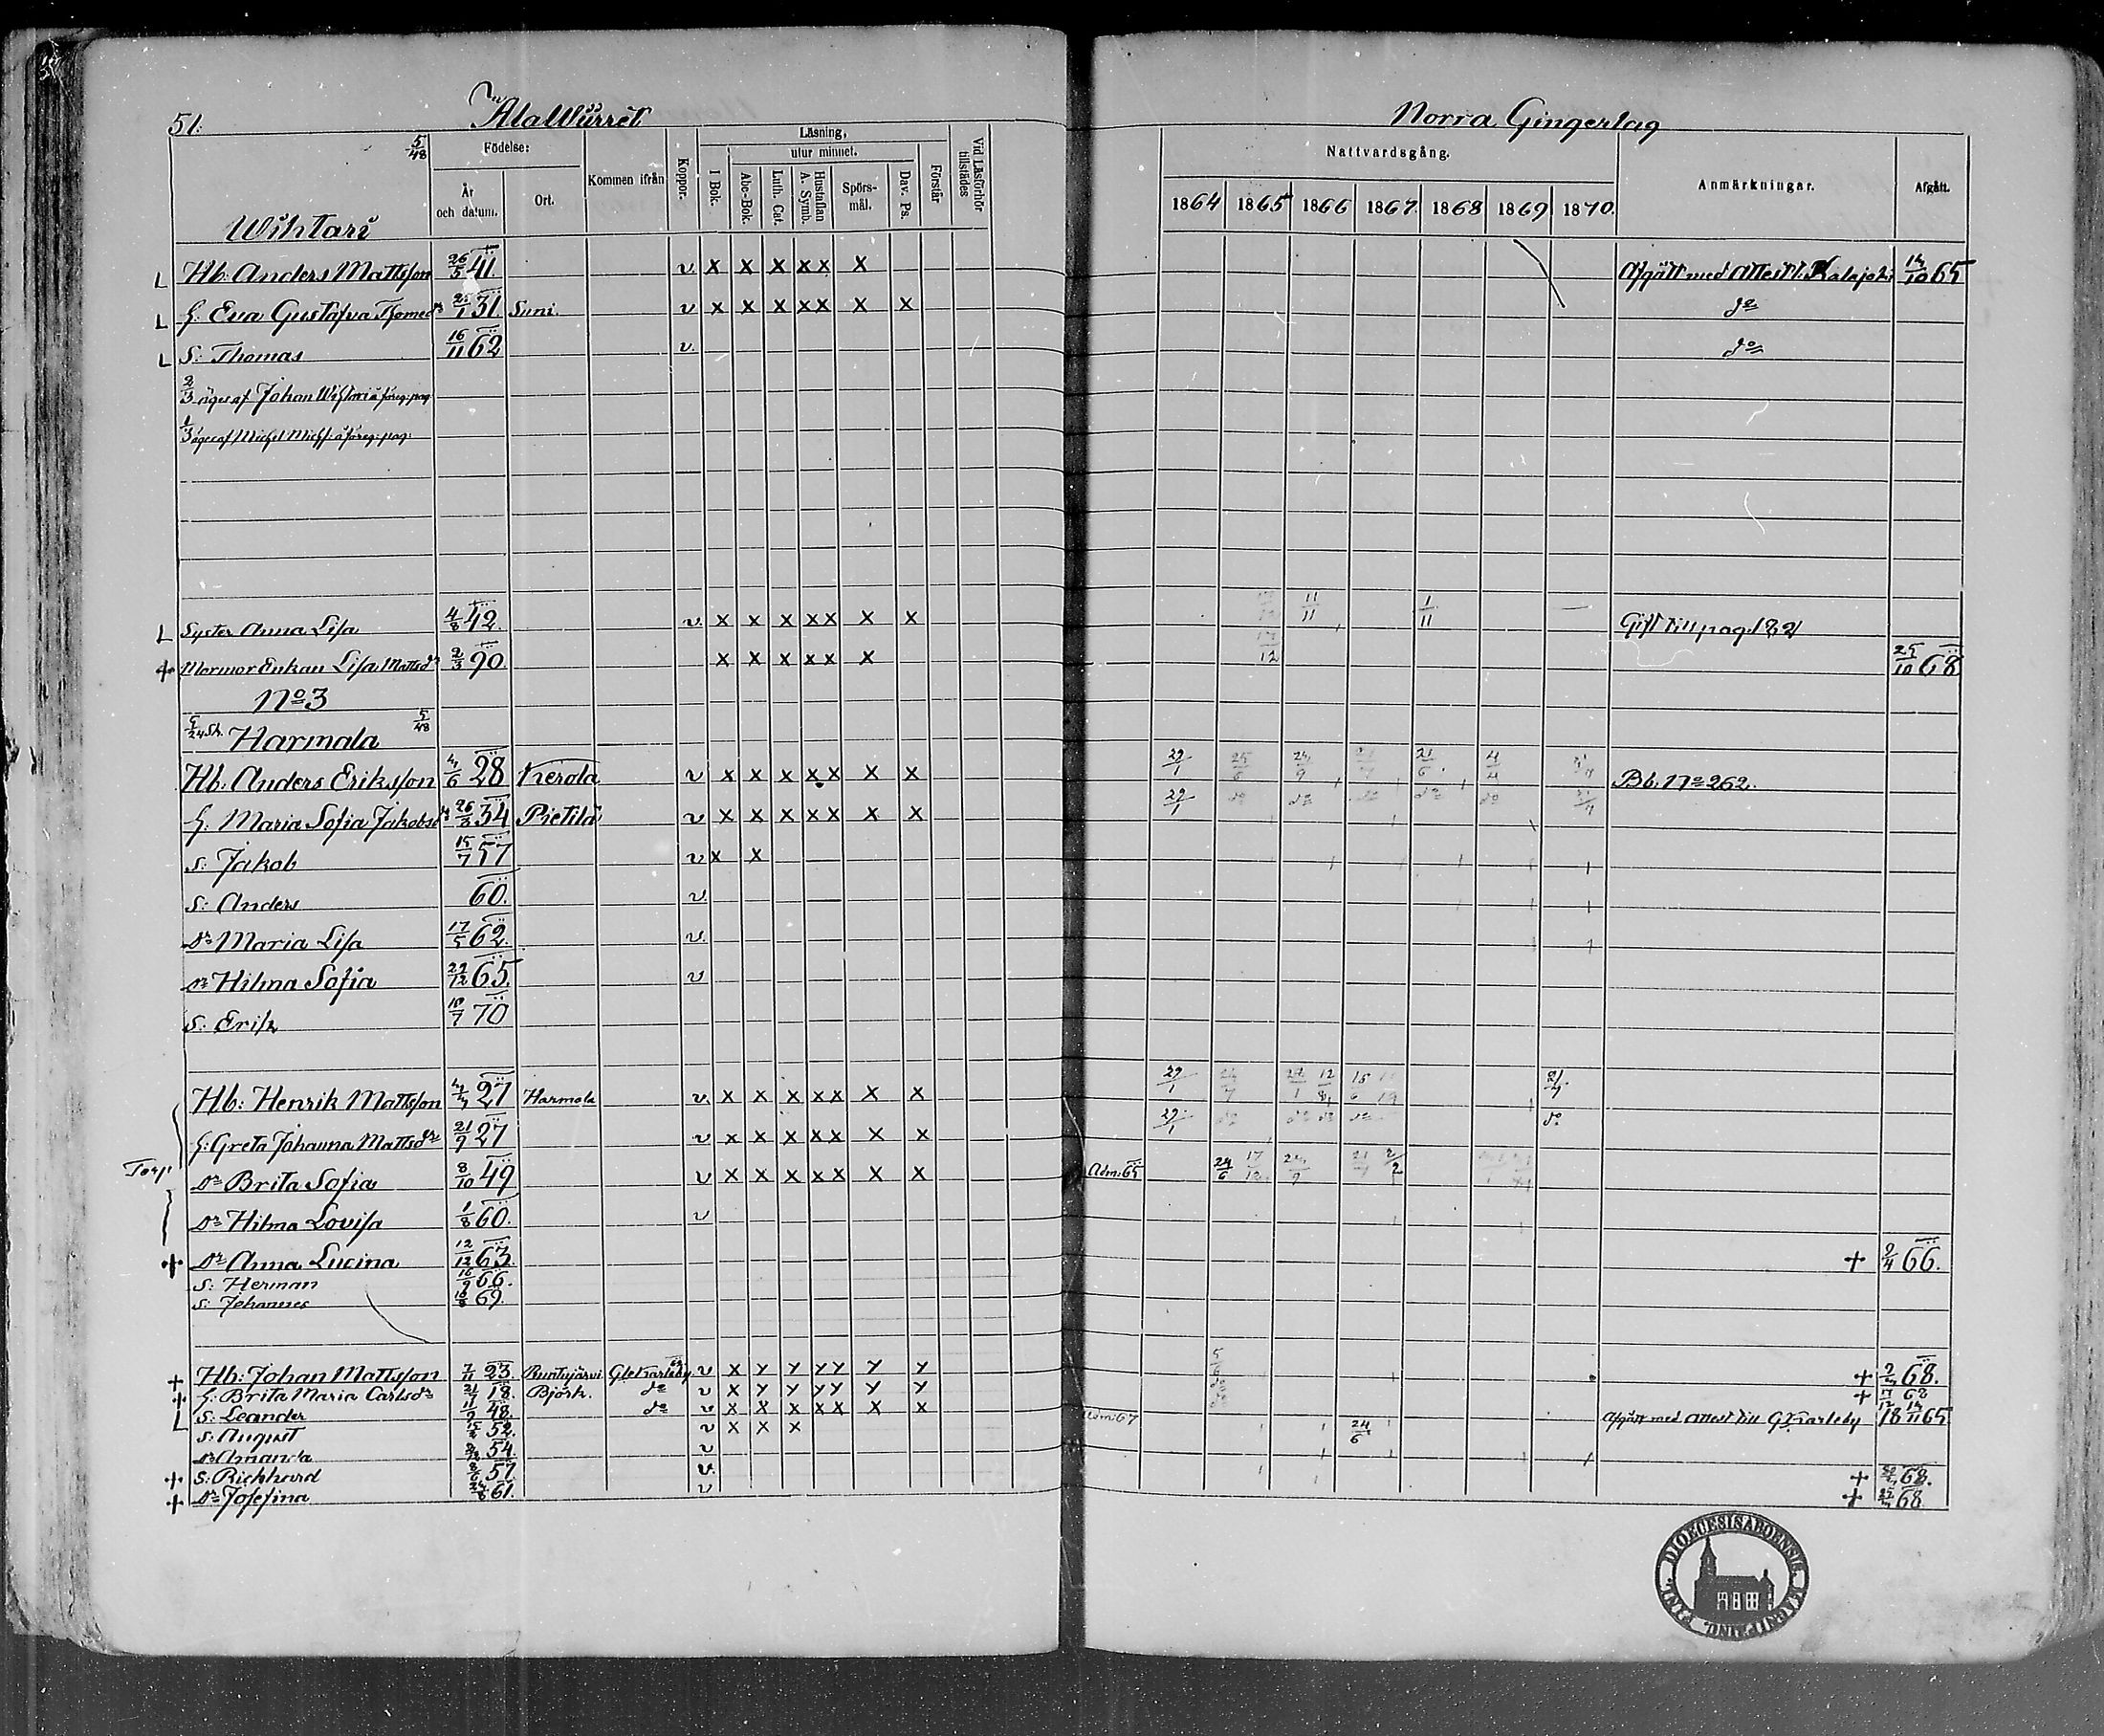 51.
AlaWürret
Norra Gingerlag
5/48
Födelse:
År och datum.
Ort.
Kommen ifrån
Koppor.
Läsning,
utur minnet.
I Bok.
Abc-Bok.
Luth. Cat.
Hustaflan A. Symb.
Spörs-mål.
Dav. Ps.
Förstår
Vid Läsförhör tillstädes
Nattvardsgång.
1864 1865 1866 1867 1868 1869 1870
Anmärkningar.
Afgått.
Wihtari
Hb: Anders Mattsson 26/5 41. v x x x xx x Afgått med Attest t. Kalajoki 14/10 65
h: Eva Gustafva Thomedr 25/1 31 Suni. v x x x xx x x do
S: Thomas 16/11 62 v. do
2/3 äges af Johan Wihtari å föreg: pag
1/3 äges af Michel Michss: å föreg: pag:
L Syster Anna Lisa 4/8 42. v. x x x xx x x 11/11 1/11 Gift till pag. 182
+ Mormor Enkan Lisa Mattsdr 2/3 90 x x x xx x 17/12 25/10 68
No 3
5/24 Sk. Harmala 5/48
Hb. Anders Eriksson 4/6 28 Kerola v x x x xx x x 29/1 25/6 24/9 21/6 4/4 Bb. No 262.
h: Maria Sofia Jakobsdr 26/8 34 Pietilä v x x x xx x x 29/1 do do do do do
S: Jakob 15/7 57 v x x
S: Anders 60. v.
Dr Maria Lisa 17/5 62. v.
Dr Hilma Sofia 29/12 65. v
S: Erik 10/7 70
Hb: Henrik Mattsson 4/4 27 Harmala v. x x x xx x x 29/1 12/8 15/6 21/4
h: Greta Johanna Mattsdr 21/9 27 v x x x xx x x 29/1 do do do do do
Torp
Dr Brita Sofia 8/10 49 v x x x xx x x Adm: 65 24/6 17/12 24/9 2/2
Dr Hilma Lovisa 1/8 60. v
+ Dr Anna Lucina 12/12 63. + 2/4 66.
S: Herman 16/9 66.
S: Johannes 16/8 69.
+ Hb: Johan Mattsson 7/11 23 Runtujärvi Gle Karleby v x x x xx x x + 2/4 68.
+ h: Brita Maria Carlsdr 21/7 18. Björk. do v x x x xx x x + 17/12 62
L S: Leander 11/9 48. do v x x x xx x x Adm: 67 Afgått med attest till G. Karleby 18 14/11 65
S: August 52. v x x x 24/6
Dr Amanda 54. v
+ S: Rickhard 57 v. + 68.
+ Dr Josefina 61. v + 68
DIOECESIS ABOENSIS